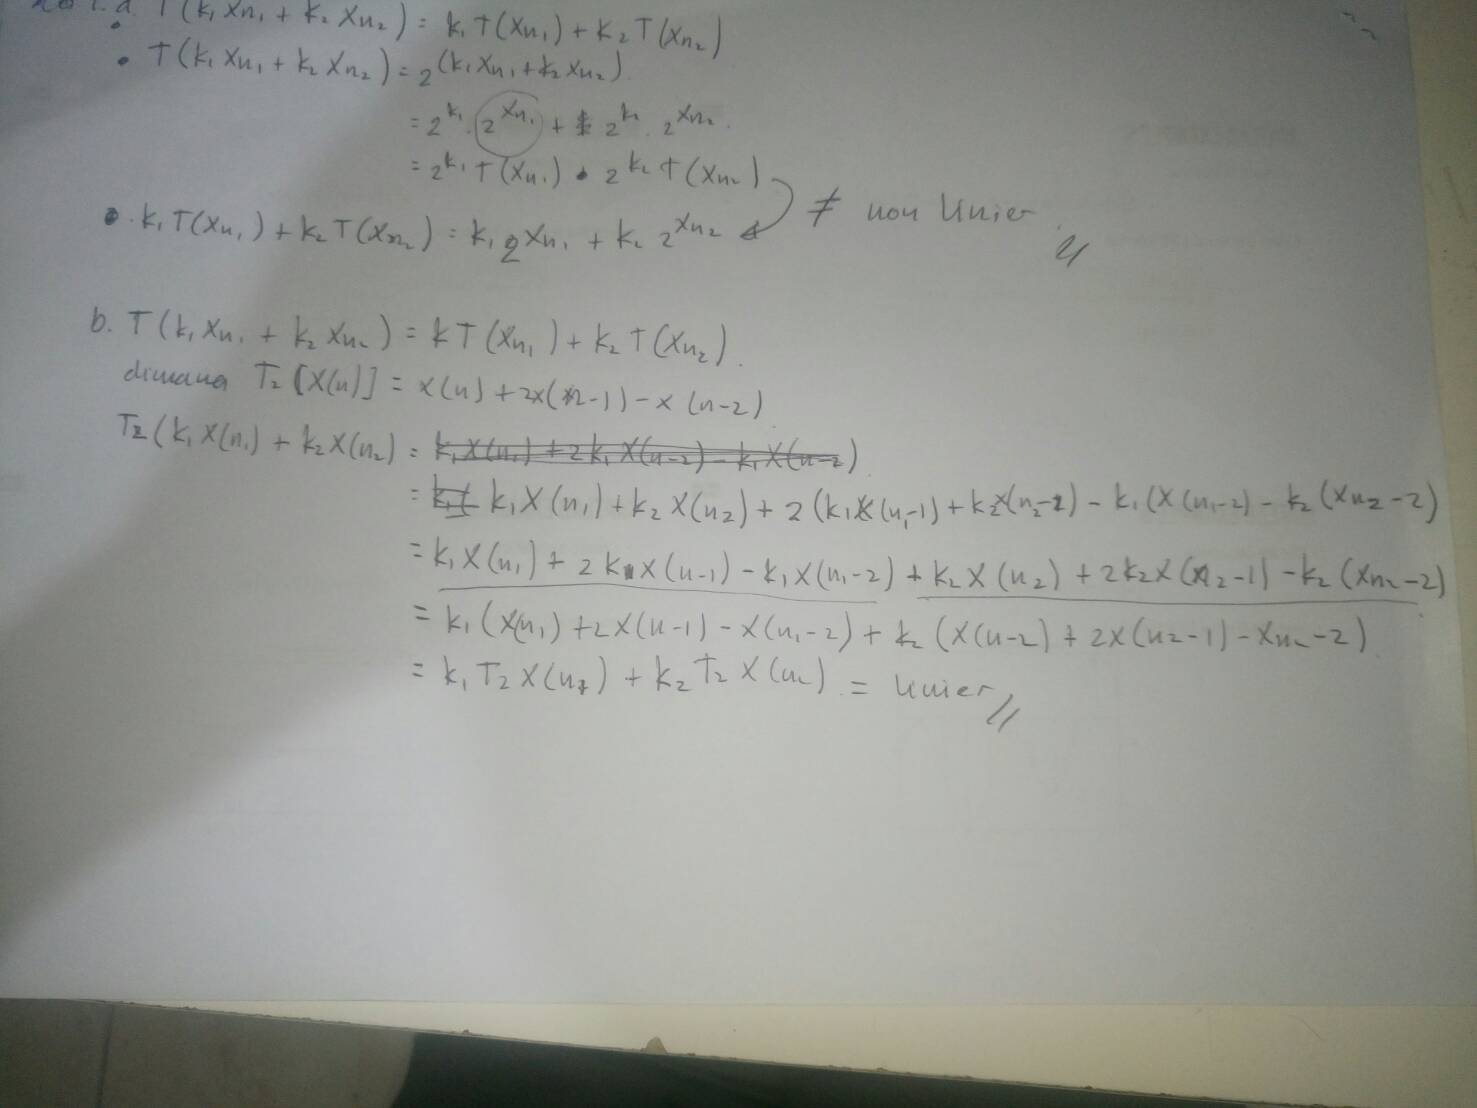 T(k₁Xn₁ + k₂Xn₂) = k₁T(Xn₁) + k₂T(Xn₂)
• T(k₁Xn₁ + k₂Xn₂) = 2^(k₁Xn₁ + k₂Xn₂)
= 2^k₁ . 2^Xn₁ + 2^k₂ . 2^Xn₂
= 2^k₁ T(Xn₁) • 2^k₂ T(Xn₂)
≠ non linier //
• k₁T(Xn₁) + k₂T(Xn₂) = k₁ 2^Xn₁ + k₂ 2^Xn₂
b. T(k₁Xn₁ + k₂Xn₂) = kT(Xn₁) + k₂T(Xn₂).
dimana T₂[X(n)] = x(n) + 2x(n-1) - x(n-2)
T₂(k₁X(n₁) + k₂X(n₂) = k₁X(n₁) + 2k₁X(n-2) - k₁X(n-2)
= k₁X(n₁) + k₂X(n₂) + 2(k₁X(n₁-1) + k₂x(n₂-1) - k₁(X(n₁-2) - k₂(Xn₂-2)
= k₁X(n₁) + 2k₁X(n-1) - k₁X(n₁-2) + k₂X(n₂) + 2k₂X(n₂-1) - k₂(Xn₂-2)
= k₁(X(n₁) + 2X(n-1) - X(n₁-2) + k₂(X(n-2) + 2X(n₂-1) - Xn₂-2)
= k₁T₂X(n₁) + k₂T₂X(n₂) = linier //